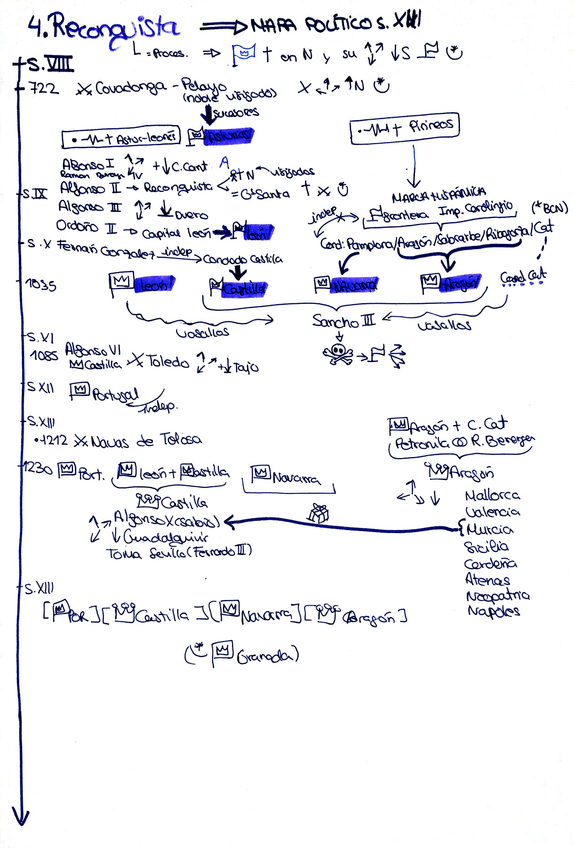 4. Reconquista ⟹ MAPA POLÍTICO S. XIII
L = Proces. ⇒ † en N y su ↓ S
S. VIII
722 Covadonga - Pelayo
(noble visigodo)
X N
sucesores
+ Astur-leonés Asturias
+ Pirineos
Alfonso I + ↓ C. Cant
Alfonso II → Reconquista = †N visigodos
= Gª Santa †
S. IX
Alfonso III ↓ Duero
MARCA HISPÁNICA
indep frontera Imp. Carolingio (*BCN)
Ordoño II → Capital León → León
Cond: Pamplona/Aragón/Sobrarbe/Ribagorza/Cat
S. X Fernán González indep. → Condado Castilla
1035 León Castilla Navarra Aragón Cond Cat
vasallos Sancho III vasallos
S. XI
1085 Alfonso VI
Castilla Toledo + ↓ Tajo
S. XII Portugal
indep.
S. XIII
•1212 Navas de Tolosa
Aragón + C. Cat
Petronila R. Berenguer
Aragón
1230 Port. León + Castilla Navarra
Castilla
Alfonso X (sabio)
↓ Guadalquivir
Toma Sevilla (Fernando III)
Mallorca
Valencia
Murcia
Sicilia
Cerdeña
Atenas
Neopatria
Nápoles
S. XIII
[POR] [Castilla] [Navarra] [Aragón]
(* Granada)